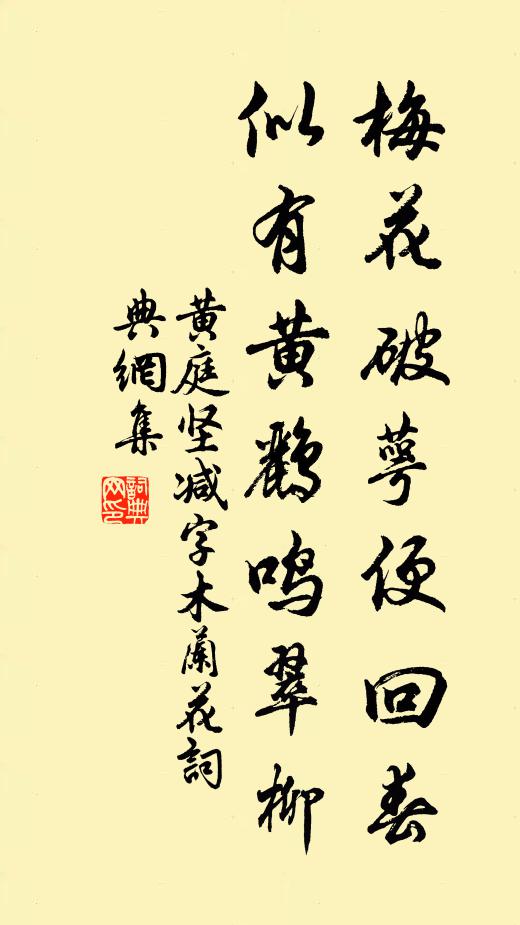 梅花破萼便回春
似有黄鹂鸣翠柳
黄庭坚减字木蘭花詞
典網集
詞典网印